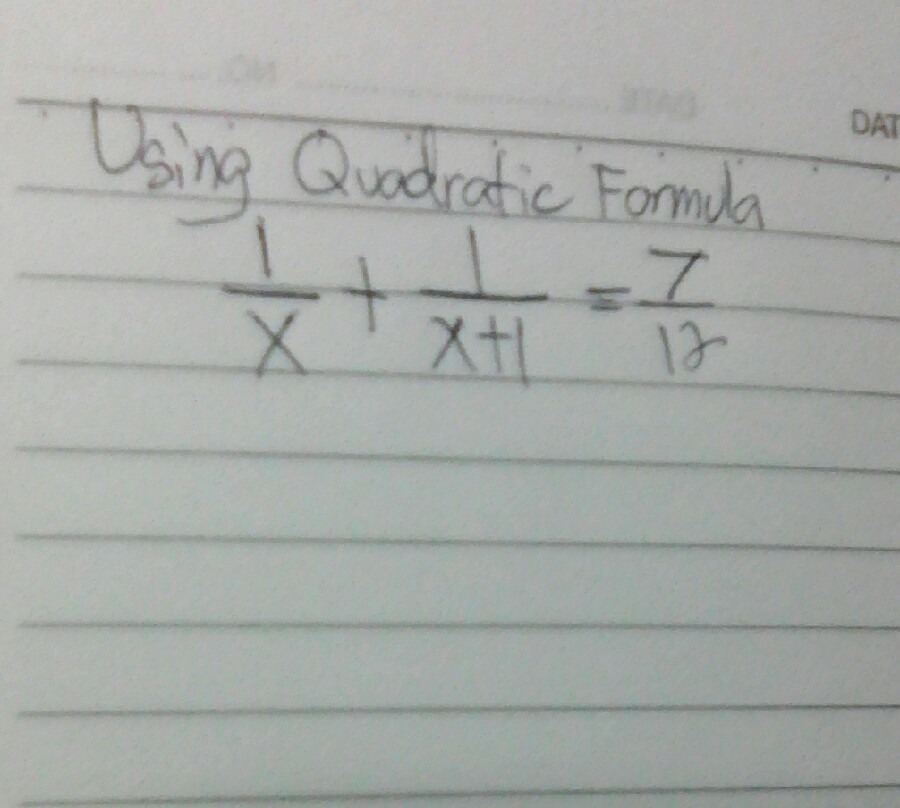 DAT
Using Quadratic Formula
1/x + 1/x+1 = 7/12